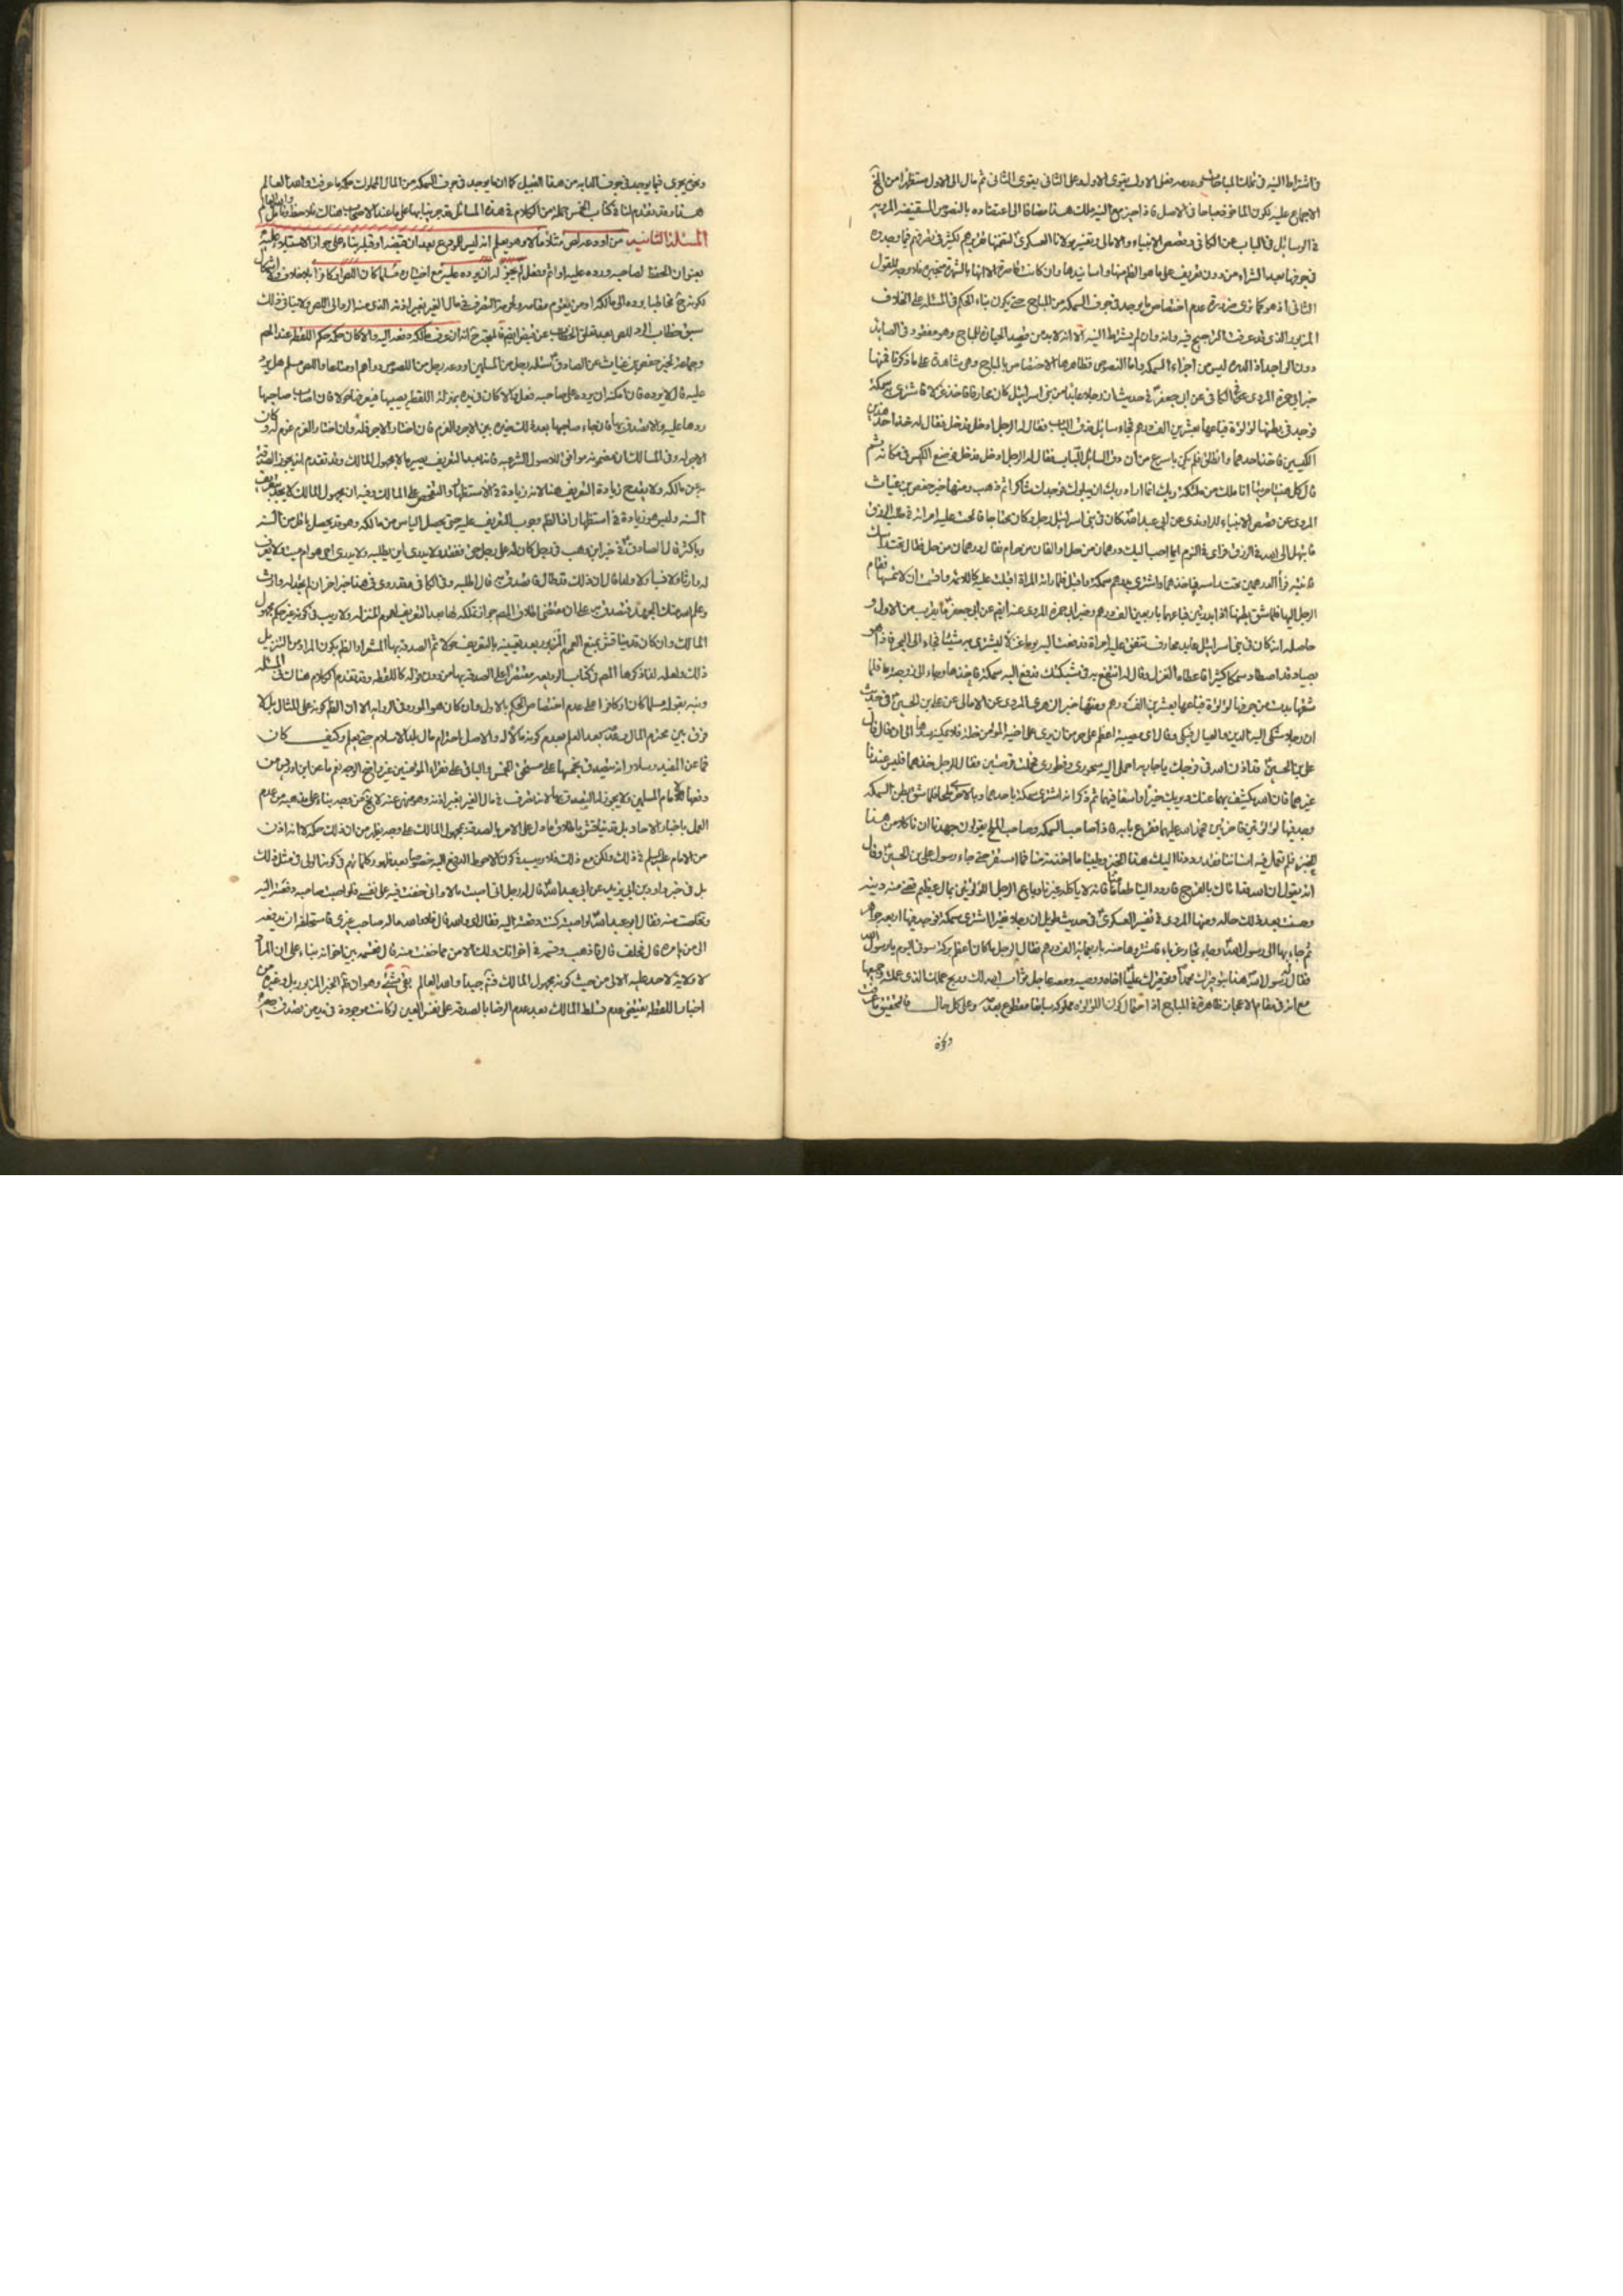 فاشتراط النية في تملك المباحات وعدمه فعلى الاول يقوى الاول وعلى الثاني يقوى الثاني ثم مال الى الاول مستظهرا من
الاجماع عليه لكون المأخوذ مباحا في الاصل فاذا حيز مع النية ملك هذا مضافا الى اعتضاده بالنصوص المستفيضة المروية
في الوسائل في الباب عن الكافي وقصص الانبياء والامالي وتفسير مولانا العسكري لتضمنها تقريرهم لكثير في تصرفهم فيما وجدوه
في جوفها بعد الشراء من دون تعريف على ما هو الظاهر منها واسانيدها وان كانت قاصرة الا انها بالشهرة منجبرة فلا وجه للقول
الثاني اذ هو كما ترى ضرورة عدم اختصاص ما يوجد في جوف السمكة من المباح حتى يكون بناء الحكم في المسئلة على الخلاف
المزبور الذي قد عرفت الترجيح فيه وانه وان لم يشترط النية الا انه لا بد من قصد الحيازة للمباح وهو مفقود في الصائد
دون الواجد اذ الدرة ليس من اجزاء السمكة واما النصوص فظاهرها الاختصاص بالمباح وهي شاهدة على ما ذكرنا فمنها
خبر ابي حمزة المروي عن الكافي عن ابي جعفر في حديث ان رجلا عابدا من بني اسرائيل كان محارفا فاخذ غزلا فاشترى به سمكة
فوجد في بطنها لؤلؤة فباعها بعشرين الف درهم فجاء سائل فدق الباب فقال له الرجل ادخل فدخل فقال له خذ احد هذين
الكيسين فاخذ احدهما وانطلق فلم يكن باسرع من ان دق السائل الباب فقال له الرجل ادخل فدخل فوضع الكيس في مكانه ثم
قال كل هنيئا مريئا انا ملك من ملئكة ربك انما اراد ربك ان يبلوك فوجدك شاكرا ثم ذهب ومنها خبر حفص بن غياث
المروي عن قصص الانبياء للراوندي عن ابي عبد الله كان في بني اسرائيل رجل وكان محتاجا فالحت عليه امرأته في طلب الرزق
فابتهل الى الله في الرزق فرأى في النوم ايما احب اليك درهمان من حل او الفان من حرام فقال درهمان من حل فقال تحت رأسك
فانتبه فرأى الدرهمين تحت رأسه فاخذهما واشترى بدرهم سمكة واقبل فلما رأته المرأة اقبلت عليه كاللائمة واقسمت ان لا تمسها فقام
الرجل اليها فلما شق بطنها اذا بدرتين فباعهما باربعين الف درهم وخبر ابي حمزة المروي عنه ايضا عن ابي جعفر ما يقرب من الاول و
حاصله انه كان في بني اسرائيل عابد محارف تنفق عليه امرأته فدفعت اليه يوما غزلا ليشتري به شيئا فجاء الى البحر فاذا هو
بصياد قد اصطاد سمكا كثيرا فاعطاه الغزل وقال له انتفع به في شبكتك فدفع اليه سمكة فاخذها وجاء الى زوجته بها فلما
شقتها بدت من جوفها لؤلؤة فباعها بعشرين الف درهم ومنها خبر الزهري المروي عن الامالي عن علي بن الحسين في حديث
ان رجلا شكى اليه الدين والعيال فبكى وقال اي مصيبة اعظم على حر مؤمن ان يرى باخيه المؤمن خلة فلا يمكنه سدها الى ان قال قال
علي بن الحسين فقد اذن الله في فرجك يا جارية احملي اليه سحوري وفطوري فحملت قرصتين فقال للرجل خذهما فليس عندنا
غيرهما فان الله يكشف بهما عنك ويريك خيرا واسعا فيهما ثم ذكر انه اشترى سمكة باحدهما وبالاخرى ملحا فلما شق بطن السمكة
وجد فيها لؤلؤتين فاخرتين فحمد الله عليهما فقرع بابه فاذا صاحب السمكة وصاحب الملح يقولان جهدنا ان نأكل من هذا
الخبز فلم تعمل فيه اسناننا فقد رددنا اليك هذا الخبز وطيبنا ما اخذته منا فما استقر حتى جاء رسول علي بن الحسين وقال
انه يقول ان الله قد اتاك بالفرج فاردد الينا طعامنا فانه لا يأكله غيرنا وباع الرجل اللؤلؤتين بمال عظيم قضى منه دينه
وحسنت بعد ذلك حاله ومنها المروي في تفسير العسكري في حديث طويل ان رجلا فقيرا اشترى سمكة فوجد فيها اربعة جواهر
ثم جاء بها الى رسول الله وجاء تجار غرباء فاشتروها منه باربعمائة الف درهم فقال الرجل ما كان اعظم بركة سوقي اليوم يا رسول الله
فقال رسول الله هذا بتوقيرك محمدا وتوقيرك عليا اخاه ووصيه وهو عاجل ثواب الله لك وربح عملك الذي عملته
مع انه في مقام الاعجاز ظاهرة في المباح اذ احتمال كون اللؤلؤة مملوكة سابقا مقطوع بعدمه وعلى كل حال فالتحقيق ما عرفت
ونحوه يجري فيما يوجد في جوف الدابة من هذا القبيل كما ان ما يوجد في جوف السمكة من المال المملوك حكمه ما عرفت والله العالم
هذا وقد تقدم لنا في كتاب الخمس جملة من الكلام في هذه المسائل قد جرينا بها على ما عند الاصحاب هناك فلاحظ وتأمل والله العالم
المسئلة الثانية من اودعه لص مثلا مالا وهو يعلم انه ليس للمودع بعد ان قبضه او قبله بناء على جواز الاستيلاء عليه
بعنوان الحفظ لصاحبه ورده عليه او اثم وفعل لم يجز له ان يرده عليه مع اختياره مسلما كان اللص او كافرا بلا خلاف ولا اشكال
لكونه ح مخاطبا برده الى مالكه او من يقوم مقامه ولحرمة التصرف في مال الغير بغير اذنه الذي منه الرد الى اللص ولا ينافي ذلك
سبق خطاب الرد للص بعد تعلق الخطاب عن قبض ايضا فليتجه ح انه ان عرف مالكه دفعه اليه والا كان حكمه حكم اللقطة عند المصنف
وجماعة لخبر حفص بن غياث عن الصادق سئله رجل من المسلمين اودعه رجل من اللصوص دراهم او متاعا واللص مسلم هل يرد
عليه قال لا يرده فان امكنه ان يرده على صاحبه فعل والا كان في يده بمنزلة اللقطة يصيبها فيعرفها حولا فان اصاب صاحبها
ردها عليه والا تصدق بها فان جاء صاحبها بعد ذلك خيره بين الاجر والغرم فان اختار الاجر فله وان اختار الغرم غرم له وكان
الاجر له وفي المسالك ان مضمونه موافق للاصول الشرعية فانه بعد التعريف يصير مالا مجهول المالك وقد تقدم انه يجوز الصدقة
به عن مالكه ولا يقدح زيادة التعريف هنا لانه زيادة في الاستظهار والتفحص على المالك وفيه ان مجهول المالك لا يحد تعريفه
السنة وليس هو زيادة في استظهار اذ الظاهر وجوب التعريف عليه حتى يحصل اليأس من مالكه وهو قد يحصل باقل من السنة
وباكثر قال الصادق في خبر ابن وهب في رجل كان له على رجل حق ففقده ولا يدري اين يطلبه ولا يدري احي هو ام ميت ولا يعرف
له وارثا ولا نسبا ولا ولدا قال ان ذلك قد طال فاتصدق به قال اطلبه وفي الكافي وقد روي في هذا خبر اخر ان لم تجد له وارثا
وعلم الله منك الجهد فتصدق به على ان مقتضى اطلاق المصنف جواز تملكه لها بعد التعريف لعموم المنزلة ولا ريب في كونه غير حكم مجهول
المالك وان كان قد يناقش بمنع العموم المزبور بعد تعقيبه بالتعريف حولا ثم الصدقة بها المشعر او الظاهر بكون المراد من التنزيل
ذلك ولعله لذا ذكرها المصنف في كتاب الوديعة مقتصرا على الصدقة بها من دون قوله كاللقطة وقد تقدم الكلام هناك في المسئلة
ونبه بقوله مسلما كان او كافرا على عدم اختصاص الحكم بالاول وان كان هو المورد في الرواية الا ان الظاهر كونه على المثال بل لا
فرق بين محترم المال وغيره بعد العلم بعدم كونه مالا له والاصل احترام مال بلد الاسلام حتى يعلم وكيف كان
فما عن المفيد وسلار انه يتصدق بخمسها على مستحق الخمس والباقي على فقراء المؤمنين غير واضح الوجه نعم ما عن ابن ادريس من
دفعها الى امام المسلمين ولا يجوز له التصدق بها لانه تصرف في مال الغير بغير اذنه وهو منهي عنه لا يخلو عن وجه بناء على مذهبه من عدم
العمل باخبار الاحاد بل قد يناقش باطلاق ما دل على الامر بالصدقة بمجهول المالك على وجه يظهر من ان ذلك حكمه لا انه اذن
من الامام عليه السلم في ذلك ولكن مع ذلك فلا ريب في كون الاحوط الدفع اليه خصوصا بعد ظهور كلماتهم في كونه الولي في مثل ذلك
بل في خبر داود بن ابي يزيد عن ابي عبد الله قال له رجل اني اصبت مالا واني خفت فيه على نفسي فلو اصبت صاحبه دفعته اليه
وتخلصت منه فقال ابو عبد الله لو اصبته كنت دفعته اليه فقال اي والله قال فلا والله ما له صاحب غيري فاستحلفه ان يدفعه
الى من يأمره قال فحلف قال فاذهب وقسمه في اخوانك ولك الامن مما خفت منه قال فقسمه بين اخوانه بناء على ان المراد
لا ولاية لاحد عليه الا لي من حيث كونه مجهول المالك فتأمل جيدا والله العالم بقي شيء وهو ان الخبر المزبور بل وغيره من
اخبار اللقطة يقتضي عدم تسلط المالك بعد عدم الرضا بالصدقة على نفس العين لو كانت موجودة في يد من تصدق بها